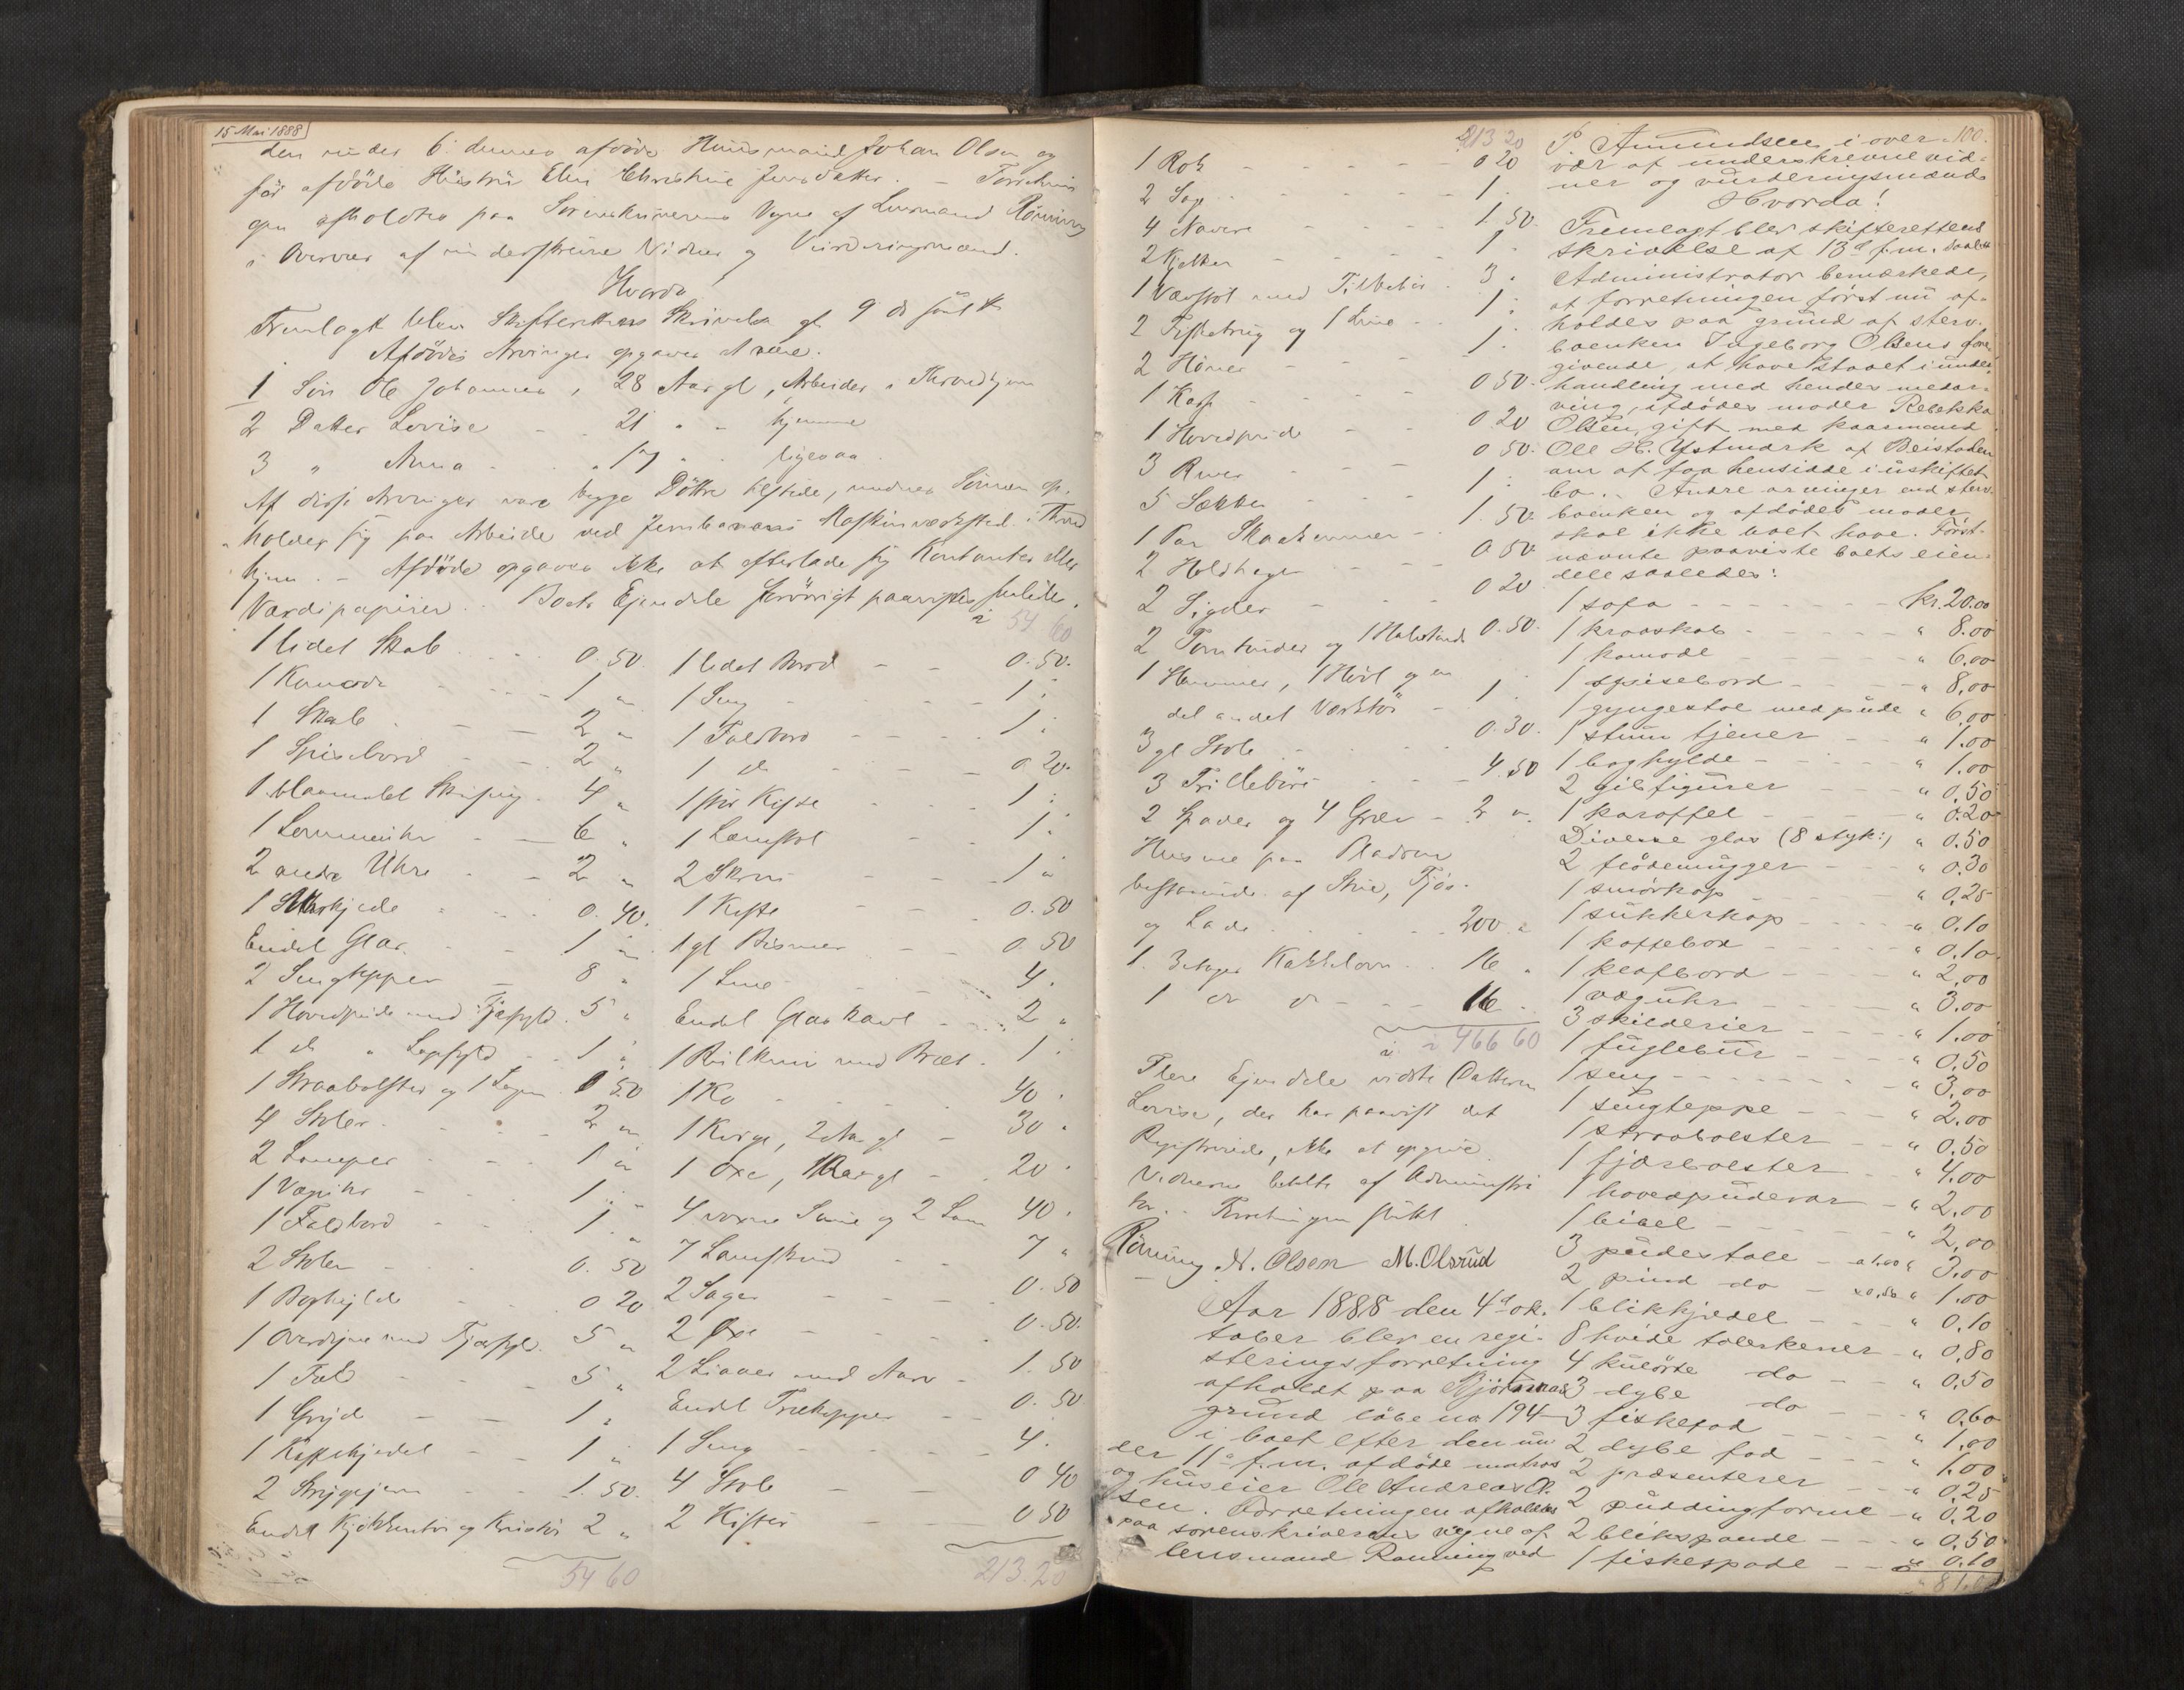 15 Mai 1888
den under 6 dennes afdøde Huusmand Johan Olsen og
før afdøde Hustru Elen Christine Jensdatter. – Forretnin
gen afholdtes paa Sorenskriverens Vegne af Lensmand Rønning
i Overvær af underskrevne Vidner og Vurderingsmænd.
Hvorda
Fremlagt blev Skifterettens Skrivelse af 9 ds
Afdødes Arvinger opgaves at være.
1 Søn Ole Johannes, 28 Aar gl, Arbeider i Throndhjem
2 Datter Lovise 21 " " hjemme
3 " Anna " 17 " ligesaa
Af disse Arvinger vare begge Døttre tilstede, medens Sønnen op-
holder sig paa Arbeide ved Jernbanens Maskinværksted i Thrond
hjem. – Afdøde opgaves ikke at efterlade sig Kontanter eller
Værdipapirer. Boets Eiendele forøvrigt paavistes saalede
54 60
1 lidet Skab 0.50
1 Komode 1 "
1 Skab 2 "
1 Spisebord 2 "
1 blaamalet 4 "
1 Lommeuhr 6 "
2 andre Uhre 2 "
1 0.40
Endel Glas 1 "
2 Sengtepper 8 "
1 Hovedpude med Fjærfyld 5 "
1 do " Lopfyld 1 "
1 Straabolster og 1 Lagen 0 50
4 Stoler 2 "
2 Lamper 1 "
1 Væguhr 1 "
1 Foldbord 1 "
2 Stoler 0.50
1 Boghylde 0 20
1 Overdyne med Fjærfyld 5 "
1 5 "
1 Gryde 1 "
1 Kaffekjedel 1 "
2 Strygejern 1.50
Endel Kjøkkentøi og Kristøi 2 "
54 60
1 lidet Bord 0.50
1 Seng 1 "
1 Foldbord 1 "
1 do 0.20
1 stor Kiste 1 "
1 Lænstol 1 "
2 Skrin 1 "
1 Kiste 0.50
1 gl Bismer 0.50
1 4 "
Endel Glas 2 "
1 med Bræt 1 "
1 Ko 40 "
1 Kvige, 2 Aar gl 30 "
1 Oxe, 1 Aar gl 20 "
4 voxne og 2 Lam 40 "
7 Lamskind 7 "
2 Sager 0.50
2 Øxe 0.50
2 Liaaer med 1.50
Endel Trækopper 0.50
1 Seng 4 "
4 Stole 0 40
2 Kister 0 50
213.20
213 20
1 Rok 0 20
2 Sag 1 "
4 Navere 1.50
2 Kjelker 1 "
1 Vævstol med Tilbehør 3 "
2 og 1 1 "
2 Høner 1 "
1 0 50
1 Hovedpude 0 20
3 River 0 50
5 Sækker 1 "
1 Par 1.50
2 0.50
2 Sigder 0 20
2 og 1 0.50
1 Hammer, 1 Høvl og en
del andet Værktøi 1 "
3 gl Stole 0.30
3 Trillebøre 4.50
2 Spader og 4 Grev 2 "
Husene paa Pladsen
bestaaende af Stue, Fjøs
og Lade 200 "
1 3etages Kakkelovn 16 "
1 do do 16 "
466 60
Flere Eiendele vidste Datteren
Lovise, der har paavist det
Registrerede, ikke at opgive
Vidnerne betalte af Administra
tor. Forretningen sluttet
Rønning N. Olsen M. Olsrud
Aar 1888 den 4d ok-
tober blev en regi-
streringsforretning
afholdt paa Bjørnnæs
grund løbe no 194
i boet efter den un-
der 11d f.m. afdøde matros
og huseier Ole Andreas Ol-
sen. Forretningen afholdtes
paa sorenskriverens vegne af
lensmand Rønning ved
100.
P Amundsen i over-
vær af underskrevne vid-
ner og vurderingsmænd.
Hvorda!
Fremlagt blev skifterettens
skrivelse af 13d f.m.
Administrator bemærkede,
at forretningen først nu af-
holdes paa grund af sterv-
boenken Ingeborg Olsens fore
givende, at have staaet i under
handling med hendes medar-
ving, afdødes moder Rebekka
Olsen, gift med
Ole H. Ystmark af Beistaden
om at faa hensidde i uskiftet
bo. Andre arvinger end sterv
boenken og afdødes moder
skal ikke boet have. Først-
nævnte paaviste boets eien-
dele saaledes:
1 sofa kr. 20.00
1 kroaskab " 8.00
1 komode " 6.00
1 spisebord " 8.00
1 gyngestol med pude " 6.00
1 stum tjener " 1.00
1 boghylde " 1.00
2 gibsfigurer " 0.50
1 karaffel " 0.20
Diverse glas (8 styk:) " 0.50
2 flødemugger " 0.30
1 smørkop " 0.25
1 sukkerkop " 0.10
1 kaffebox " 0.10
1 klafbord " 2.00
1 væguhr " 3.00
3 skilderier " 1.00
1 fuglebur " 0.50
1 seng " 3.00
1 sengteppe " 2.00
1 straabolster " 0.50
1 fjærbolster " 4.00
1 hovedpudevar " 2.00
1 bibel " 2.00
3 pudestole a 1.00 " 3.00
2 pind do a 0.50 " 1.00
1 blikkjedel " 0.10
8 hvide tallerkener " 0.80
4 kulørte do " 0.50
3 dybe do " 0.60
3 fiskefad " 1.00
2 dybe fad " 1.00
2 præsenterer " 0.25
2 puddingforme " 0.20
2 blikspande " 0.50
1 fiskespade " 0.10